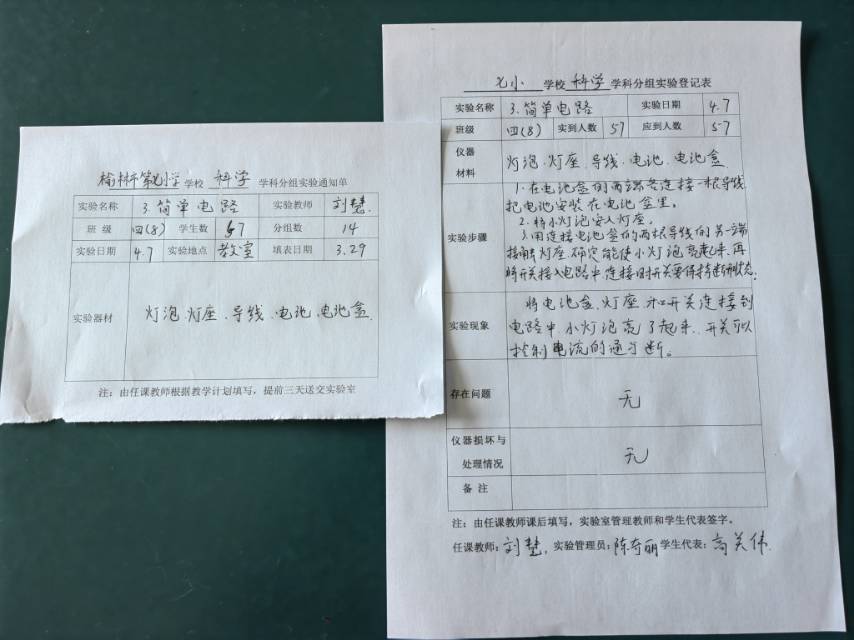 榆林第七小学 学校 科学 学科分组实验通知单
实验名称 3.简单电路 实验教师 刘慧
班 级 四(8) 学生数 57 分组数 14
实验日期 4.7 实验地点 教室 填表日期 3.29
实验器材 灯泡、灯座、导线、电池、电池盒
注：由任课教师根据教学计划填写，提前三天送交实验室
七小 学校 科学 学科分组实验登记表
实验名称 3.简单电路 实验日期 4.7
班级 四(8) 实到人数 57 应到人数 57
仪器
材料
灯泡、灯座、导线、电池、电池盒
实验步骤
1.在电池盒的两端各连接一根导线
把电池安装在电池盒里。
2.将小灯泡安入灯座。
3.用连接电池盒的两根导线的另一端
接触灯座,确定能使小灯泡亮起来,再
将开关接入电路中,连接时开关要保持断开状态。
实验现象
将电池盒、灯座和开关连接到
电路中,小灯泡亮了起来,开关可以
控制电流的通与断。
存在问题 无
仪器损坏与
处理情况
无
备 注
注：由任课教师课后填写，实验室管理教师和学生代表签字。
任课教师：刘慧 实验管理员：陈奇丽 学生代表：高关伟